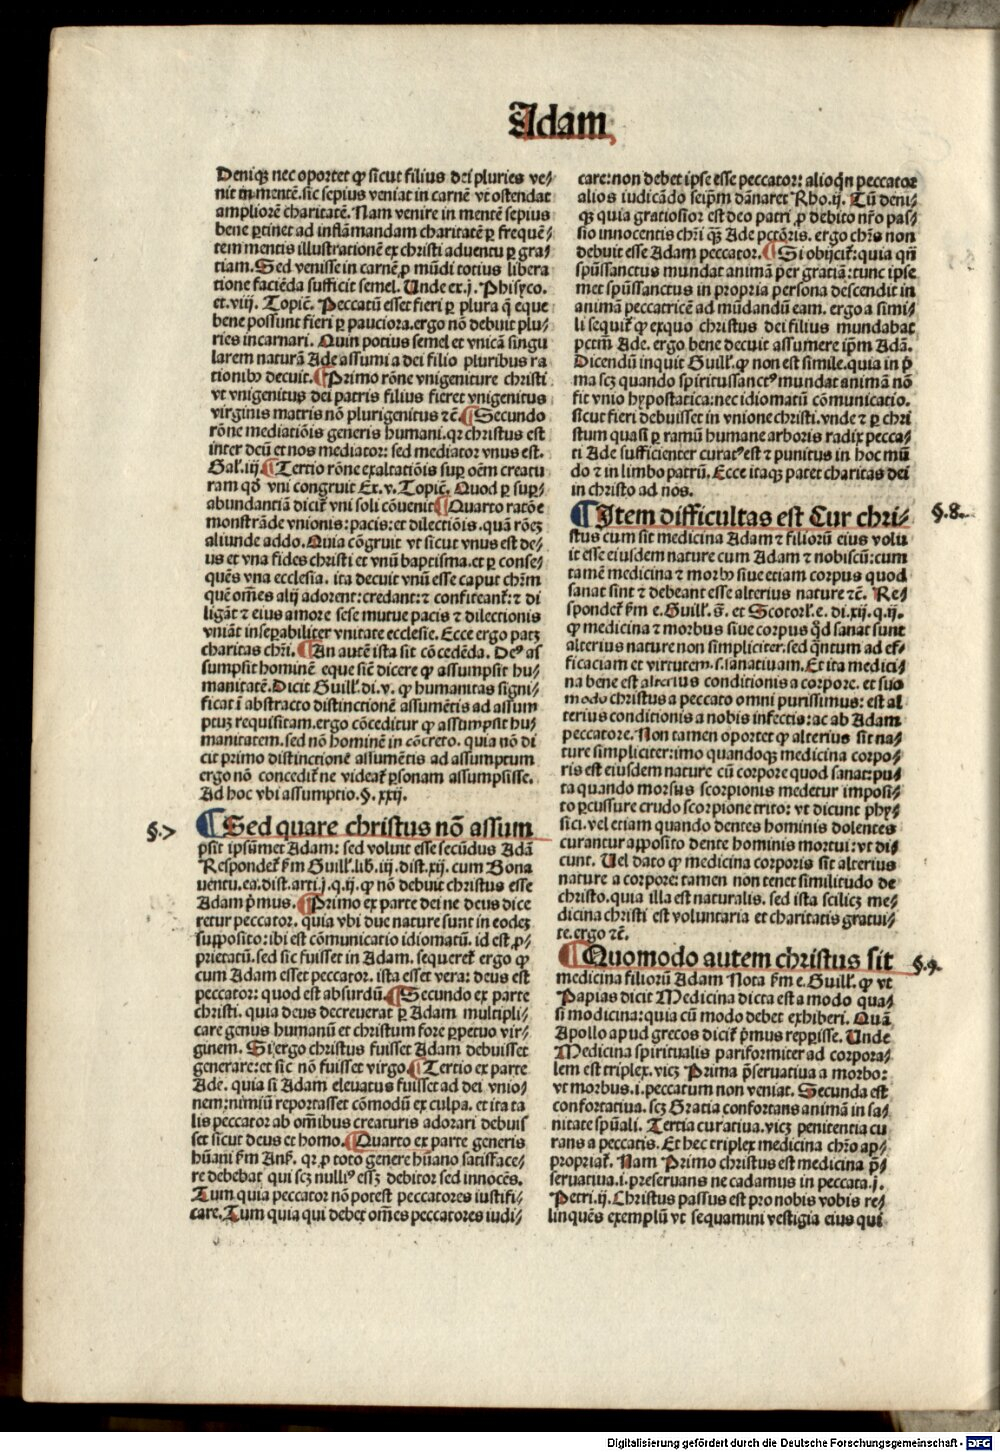 Adam
Deniqꝫ nec oportet ꝙ sicut filius dei pluries ve⸗
nit in mentē. sic sepius veniat in carnē vt ostendat
ampliorē charitatē. Nam venire in mentē sepius
bene ꝑtinet ad inflāmandam charitatē ꝑ frequē⸗
tem mentis illustrationē ex christi aduentu ꝑ gra⸗
tiam. Sed venisse in carnē ꝓ mūdi totius libera
tione faciēda sufficit semel. Unde ex.j. Phisyco.
et.viij. Topic̄. Peccatū esset fieri ꝑ plura q̄ eque
bene possunt fieri ꝑ pauciora. ergo nō debuit plu⸗
ries incarnari. Quin potius semel et vnicā singu
larem naturā Ade assumi a dei filio pluribus ra
tionibꝰ decuit. ¶Primo rōne vnigeniture christi
vt vnigenitus dei patris filius fieret vnigenitus
virginis matris nō plurigenitus ⁊c̄. ¶Secundo
rōne mediatiōis generis humani. qꝛ christus est
inter deū et nos mediator: sed mediator vnus est.
Gal̓.iij. ¶Tertio rōne exaltatiōis suꝑ oēm creatu
ram qd̓ vni congruit Ex.v. Topic̄. Quod ꝑ suꝑ⸗
abundantiā dicit̉ vni soli cōuenit ¶Quarto ratōe
monstrāde vnionis: pacis: et dilectiōis. quā rōeꝫ
aliunde addo. Quia cōgruit vt sicut vnus est de⸗
us et vna fides christi et vnū baptisma. et ꝑ conse⸗
quēs vna ecclesia. ita decuit vnū esse caput chr̄m
quē om̄es alij adorent: credant: ⁊ confiteant̉: ⁊ di
ligāt ⁊ eius amore sese mutue pacis ⁊ dilectionis
vniāt inseꝑabiliter vnitate ecclesie. Ecce ergo patꝫ
charitas chr̄i. ¶An autē ista sit cōcedēda. Deꝰ as
sumpsit hominē eque siē dicere ꝙ assumpsit hu⸗
manitatē. Dicit Guill̓.di.v. ꝙ humanitas signi⸗
ficat ī abstracto distinctionē assumētis ad assum
ptuꝫ requisitam. ergo cōceditur ꝙ assumpsit hu⸗
manitatem. sed nō hominē in cōcreto. quia nō di
cit primo distinctionē assumētis ad assumptum
ergo nō concedit̉ ne videat̉ ꝑsonam assumpsisse.
Ad hoc vbi assumptio.§.xxij.
§.7
¶Sed quare christus nō assum
psit ipsūmet Adam: sed voluit esse secūdus Adā
Respondet̉ ẜm Guill̓.lib̓.iij.dist.xij. cum Bona
uentu. ea.dist.arti.j.q.ij. ꝙ nō debuit christus esse
Adam p̄mus. ¶Primo ex parte dei ne deus dice
retur peccator. quia vbi due nature sunt in eodeꝫ
supposito: ibi est cōmunicatio idiomatū. id est ꝓ⸗
prietatū. sed sic fuisset in Adam. sequeret̉ ergo ꝙ
cum Adam esset peccator. ista esset vera: deus est
peccator: quod est absurdū. ¶Secundo ex parte
christi. quia deus decreuerat ꝑ Adam multipli⸗
care genus humanū et christum fore ꝑpetuo vir⸗
ginem. Si ergo christus fuisset Adam debuisset
generare: et sic nō fuisset virgo. ¶Tertio ex parte
Ade. quia si Adam eleuatus fuisset ad dei vnio⸗
nem: nimiū reportasset cōmodū ex culpa. et ita ta
lis peccator ab om̄ibus creaturis adorari debuis
set sicut deus et homo. ¶Quarto ex parte generis
hūani ẜm Anẜ. qꝛ ꝓ toto genere hūano satisface⸗
re debebat qui scꝫ nulliꝰ essꝫ debitor sed innocēs.
Tum quia peccator nō potest peccatores iustifi⸗
care. Tum quia qui debet om̄es peccatores iudi⸗
care: non debet ipse esse peccator: alioq̄n peccator
alios iudicādo seip̄m dānaret Rho.ij. Tū deni⸗
qꝫ quia gratiosior est deo patri ꝓ debito nr̄o pas⸗
sio innocentis chr̄i qꝫ Ade pctōris. ergo chr̄s non
debuit esse Adam peccator. ¶Si obijcit̉: quia qn̄
spūssanctus mundat animā per gratiā: tunc ipse
met spūssanctus in propria persona descendit in
animā peccatricē ad mūdandū eam. ergo a simi⸗
li sequit̉ ꝙ exquo christus dei filius mundabat
pctm̄ Ade. ergo bene decuit assumere ip̄m Adā.
Dicendū inquit Guill̓. ꝙ non est simile. quia in p̄
ma scꝫ quando spiritussanctꝰ mundat animā nō
fit vnio hypostatica: nec idiomatū cōmunicatio.
sicut fieri debuisset in vnione christi. vnde ⁊ ꝑ chri
stum quasi ꝑ ramū humane arboris radix pecca⸗
ti Ade sufficienter curatꝰ est ⁊ punitus in hoc mū
do ⁊ in limbo patrū. Ecce itaqꝫ patet charitas dei
in christo ad nos.
¶Item difficultas est Cur chri⸗
§.8.
stus cum sit medicina Adam ⁊ filiorū eius volu
it esse eiusdem nature cum Adam ⁊ nobiscū: cum
tamē medicina ⁊ morbꝰ siue etiam corpus quod
sanat sint ⁊ debeant esse alterius nature ⁊c̄. Re⸗
spondet̉ ẜm e. Guill̓.s̄. et Scotorl̓.e.di.xij.q.ij.
ꝙ medicina ⁊ morbus siue corpus qd̓ sanat sunt
alterius nature non simpliciter. sed q̄ntum ad ef⸗
ficaciam et virtutem.s.sanatiuam. Et ita medici⸗
na bene est alterius conditionis a corpore. et suo
modo christus a peccato omni purissimus: est al
terius conditionis a nobis infectis: ac ab Adam
peccatore. Non tamen oportet ꝙ alterius sit na⸗
ture simpliciter: imo quandoqꝫ medicina corpo⸗
ris est eiusdem nature cū corpore quod sanat: pu⸗
ta quando morsus scorpionis medetur imposi⸗
to ꝑcussure crudo scorpione trito: vt dicunt phy⸗
sici. vel etiam quando dentes hominis dolentes
curantur apposito dente hominis mortui: vt di⸗
cunt. Uel dato ꝙ medicina corporis sit alterius
nature a corpore: tamen non tenet similitudo de
christo. quia illa est naturalis. sed ista scilicꝫ me⸗
dicina christi est voluntaria et charitatis gratui⸗
te. ergo ⁊c̄.
¶Quomodo autem christus sit
§.9.
medicina filiorū Adam Nota ẜm e. Guill̓. ꝙ vt
Papias dicit Medicina dicta est a modo qua⸗
si modicina: quia cū modo debet exhiberi. Quā
Apollo apud grecos dicit̉ p̄mus repꝑisse. Unde
Medicina spiritualis pariformiter ad corpora⸗
lem est triplex. vicꝫ Prima p̄seruatiua a morbo:
vt morbus.i.peccatum non veniat. Secunda est
confortatiua. scꝫ Gratia confortans animā in sa⸗
nitate spūali. Tertia curatiua. vicꝫ penitentia cu
rans a peccatis. Et hec triplex medicina chr̄o ap⸗
propriat̉. Nam Primo christus est medicina p̄⸗
seruatiua.i.preseruans ne cadamus in peccata.j.
Petri.ij. Christus passus est pro nobis vobis re⸗
linquēs exemplū vt sequamini vestigia eius qui
Digitalisierung gefördert durch die Deutsche Forschungsgemeinschaft - DFG